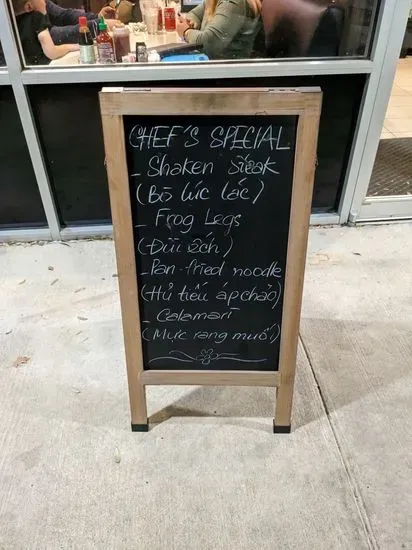 CHEF'S SPECIAL
- Shaken Steak
(Bò lúc lắc)
- Frog Legs
(Đùi ếch)
- Pan-fried noodle
(Hủ tiếu áp chảo)
- Calamari
(Mực rang muối)